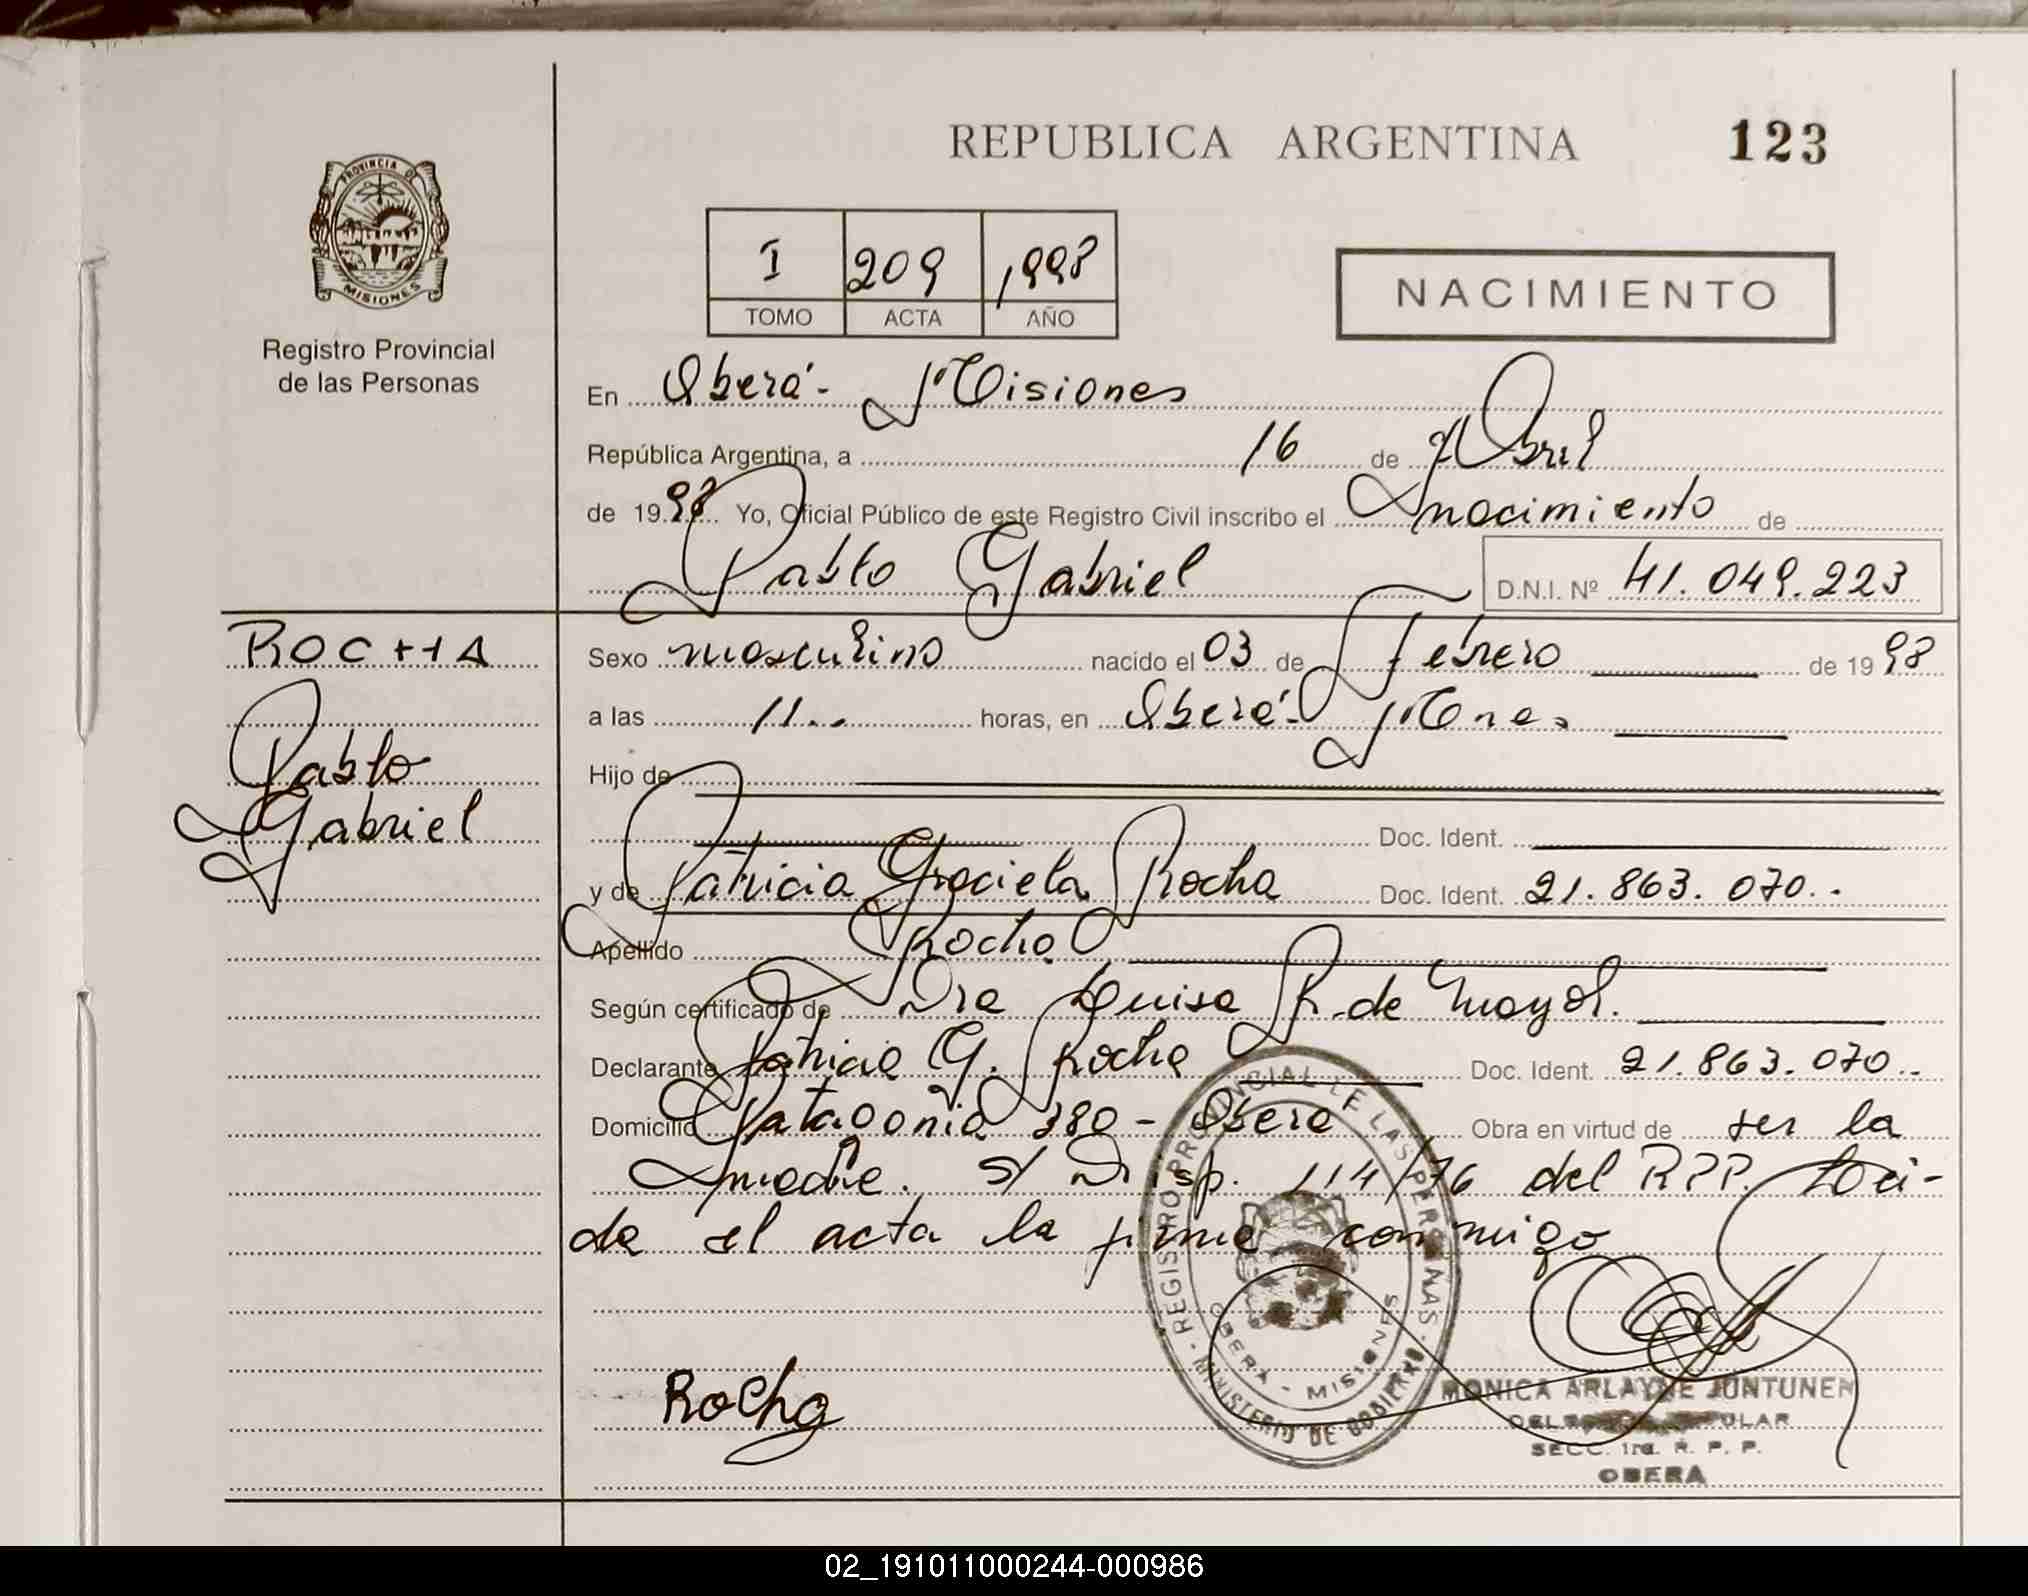 REPUBLICA ARGENTINA 123
PROVINCIA DE MISIONES
Registro Provincial
de las Personas
I 209 1998
TOMO ACTA AÑO
NACIMIENTO
En Oberá - Misiones
República Argentina, a 16 de Abril
de 1998 Yo, Oficial Público de este Registro Civil inscribo el nacimiento de
Pablo Gabriel D.N.I. Nº 41.049.223
ROCHA
Pablo
Gabriel
Sexo masculino nacido el 03 de Febrero de 1998
a las 11.. horas, en Oberá - Mnes
Hijo de
Doc. Ident.
y de Patricia Graciela Rocha Doc. Ident. 21.863.070..
Apellido Rocha
Según certificado de Dra Luisa R. de Mayol.
Declarante Patricia G. Rocha Doc. Ident. 21.863.070..
Domicilio Patagonia 380 - Oberá Obra en virtud de ser la
madre. S/ Disp. 114/76 del RPP. Leí-
da el acta la firma conmigo
REGISTRO PROVINCIAL DE LAS PERSONAS
MINISTERIO DE GOBIERNO
OBERA - MISIONES
Rocha
MONICA ARLAYNE JUNTUNEN
SECC. 1ra. R. P. P.
OBERA
02_191011000244-000986